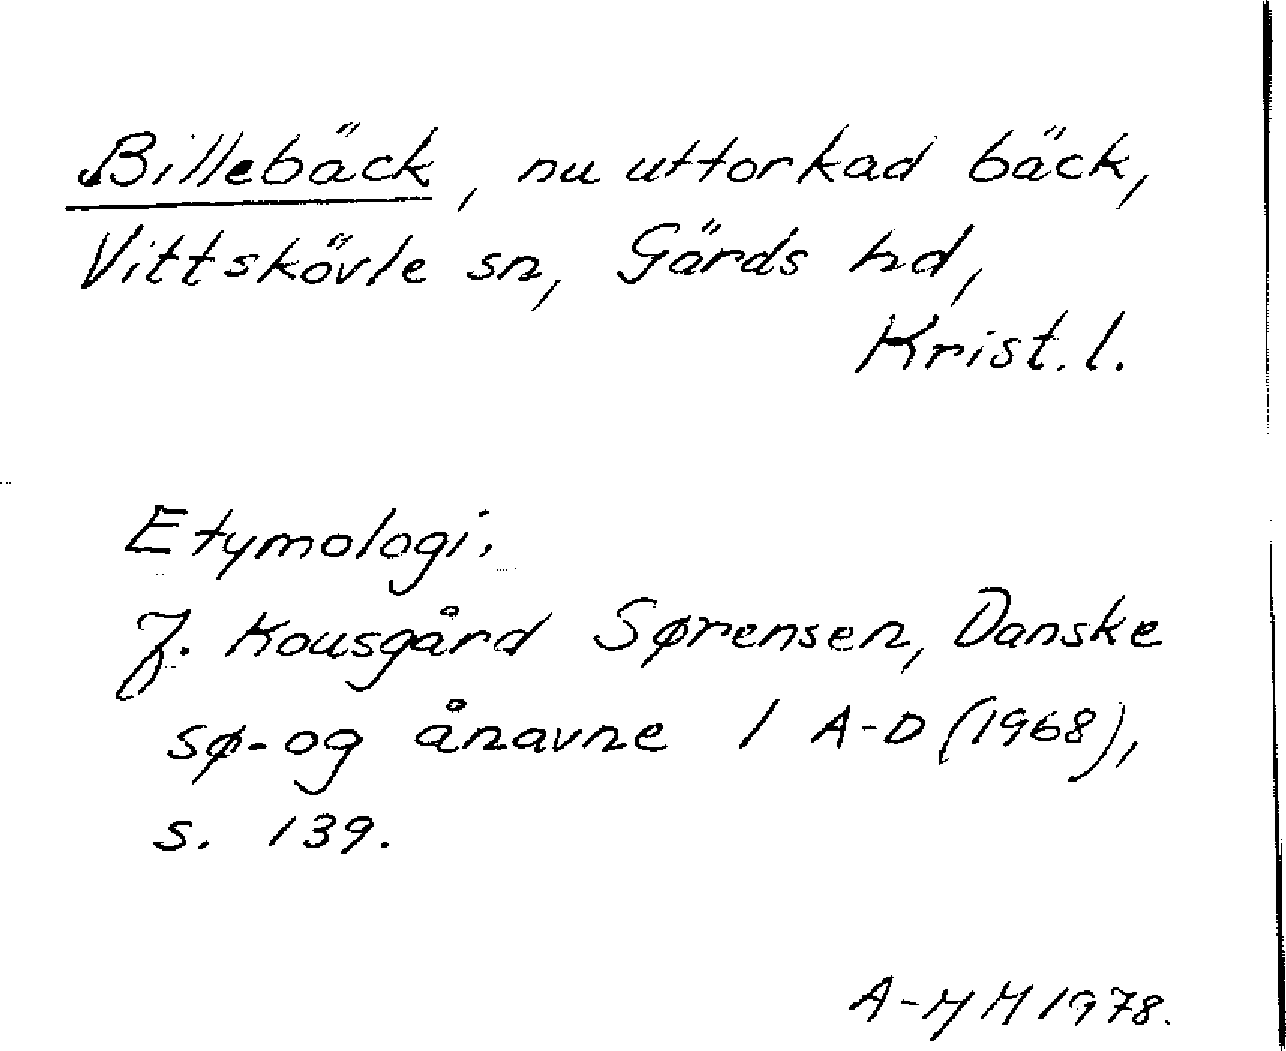 Billebäck, nu uttorkad bäck,
Vittskövle sn, Gärds hd,
Krist. l.
Etymologi.
J. Kousgård Sørensen, Danske
sø- og ånavne 1 A-D (1968),
s. 139.
A-MH 1978.